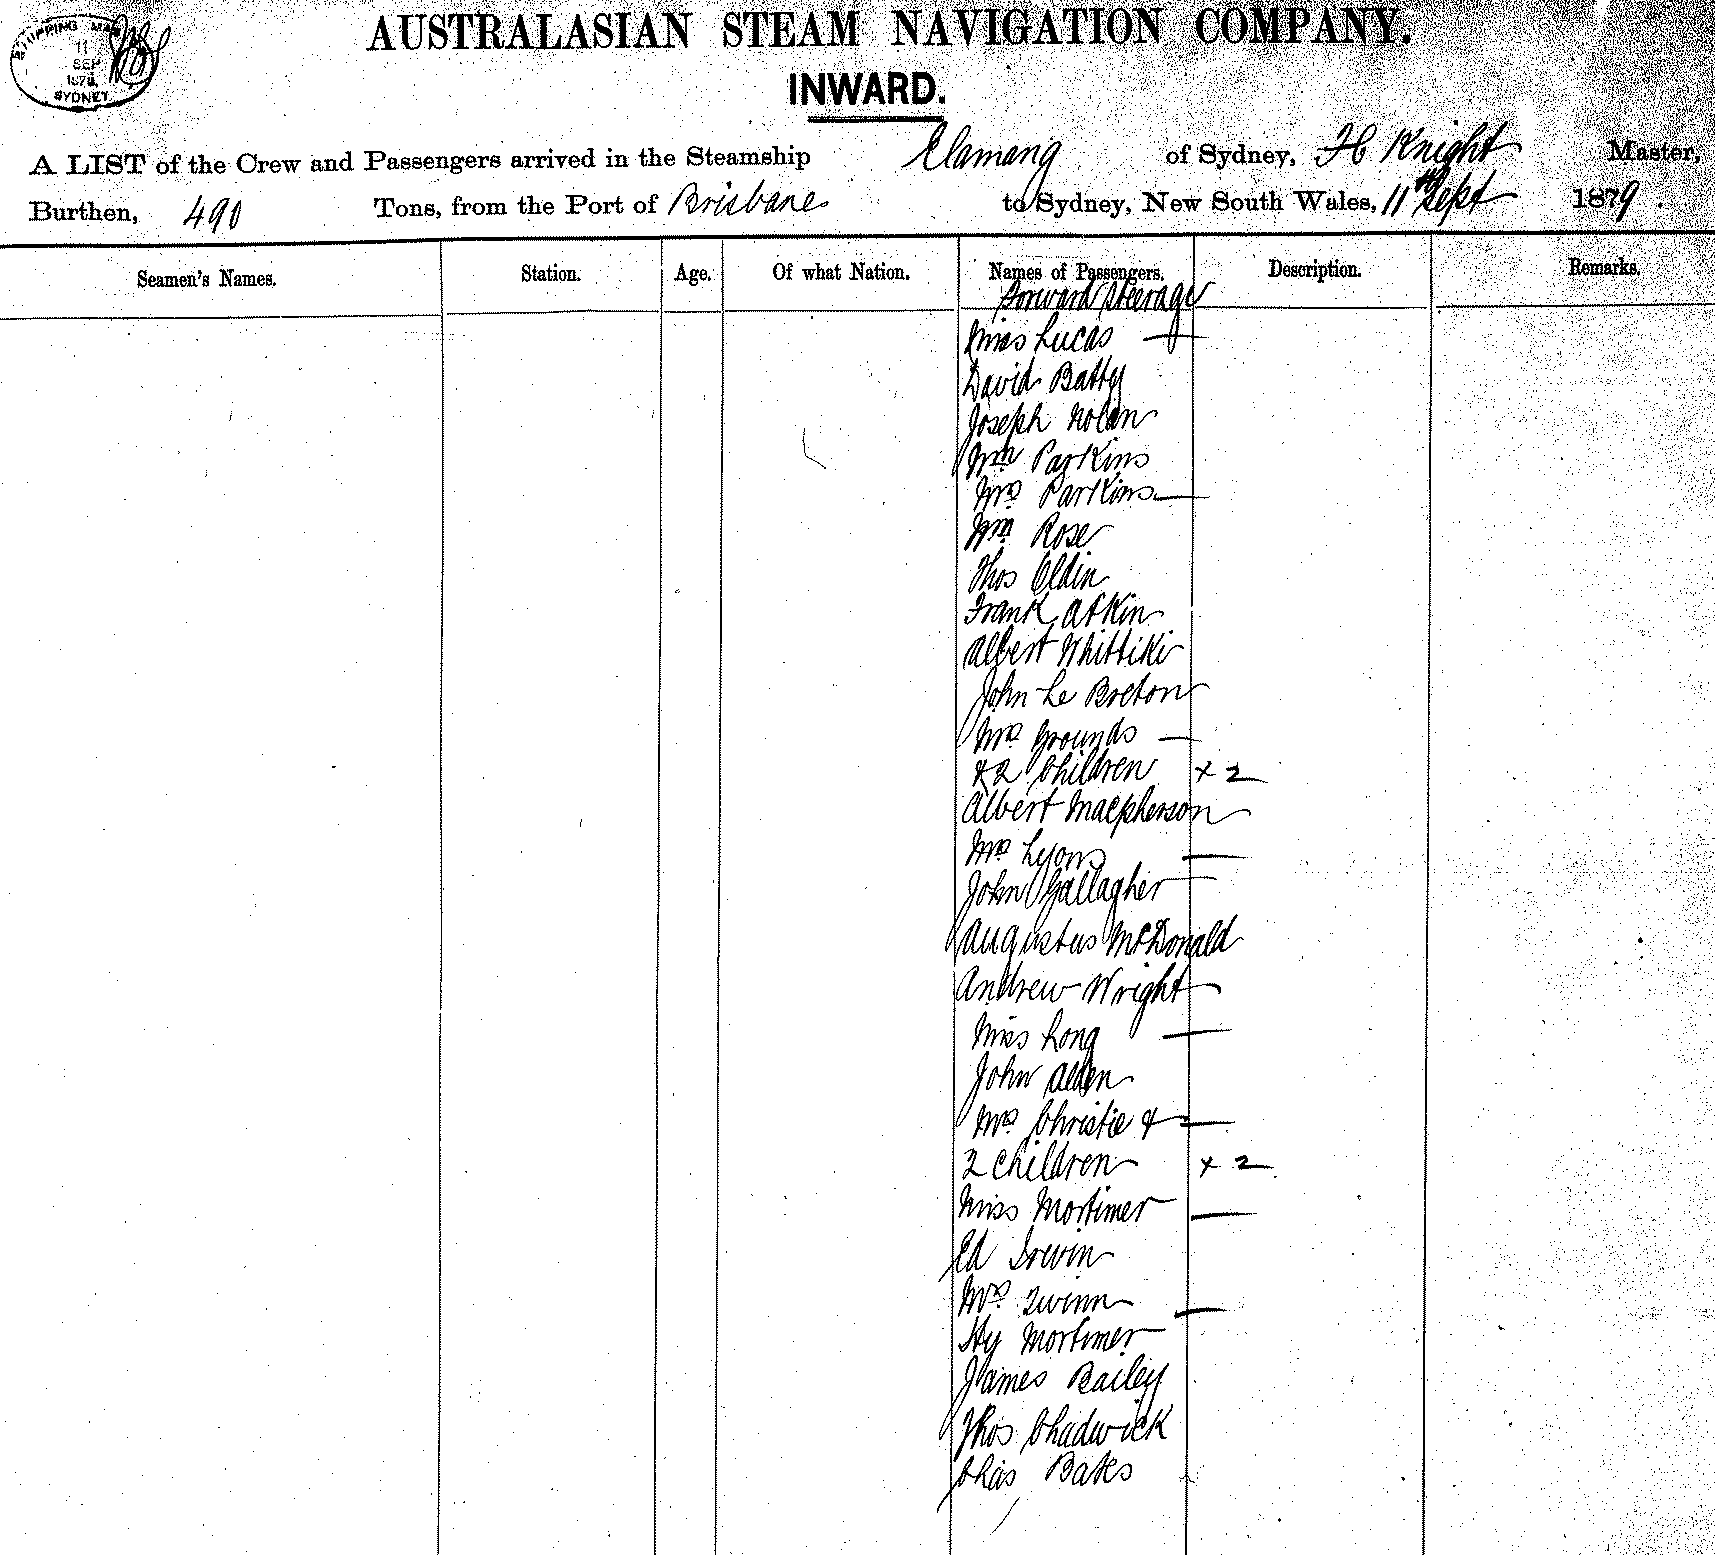 SHIPPING MAS
11
SEP
1879
SYDNEY
AUSTRALASIAN STEAM NAVIGATION COMPANY.
INWARD.
A LIST of the Crew and Passengers arrived in the Steamship Elamang of Sydney, H Knight Master,
Burthen, 490 Tons, from the Port of Brisbane to Sydney, New South Wales, 11th Sept 1879.
Seamen's Names. Station. Age. Of what Nation. Names of Passengers. Description. Remarks.
Forward Steerage
Miss Lucas —
David Batty
Joseph Nolan
Wm Parkins
Mrs Parkins —
Wm Rose
Thos Eldin
Frank Atkin
Albert Whittiki
John Le Breton
Mrs Grounds —
& 2 Children + 2
Albert Macpherson
Mrs Lyons —
John Gallagher
Augustus McDonald
Andrew Wright
Miss Long —
John Alden
Mrs Christie & —
2 Children + 2
Miss Mortimer —
Ed Irwin
Mrs Quinn —
Hy Mortimer
James Bailey
Thos Chadwick
Chas Bates